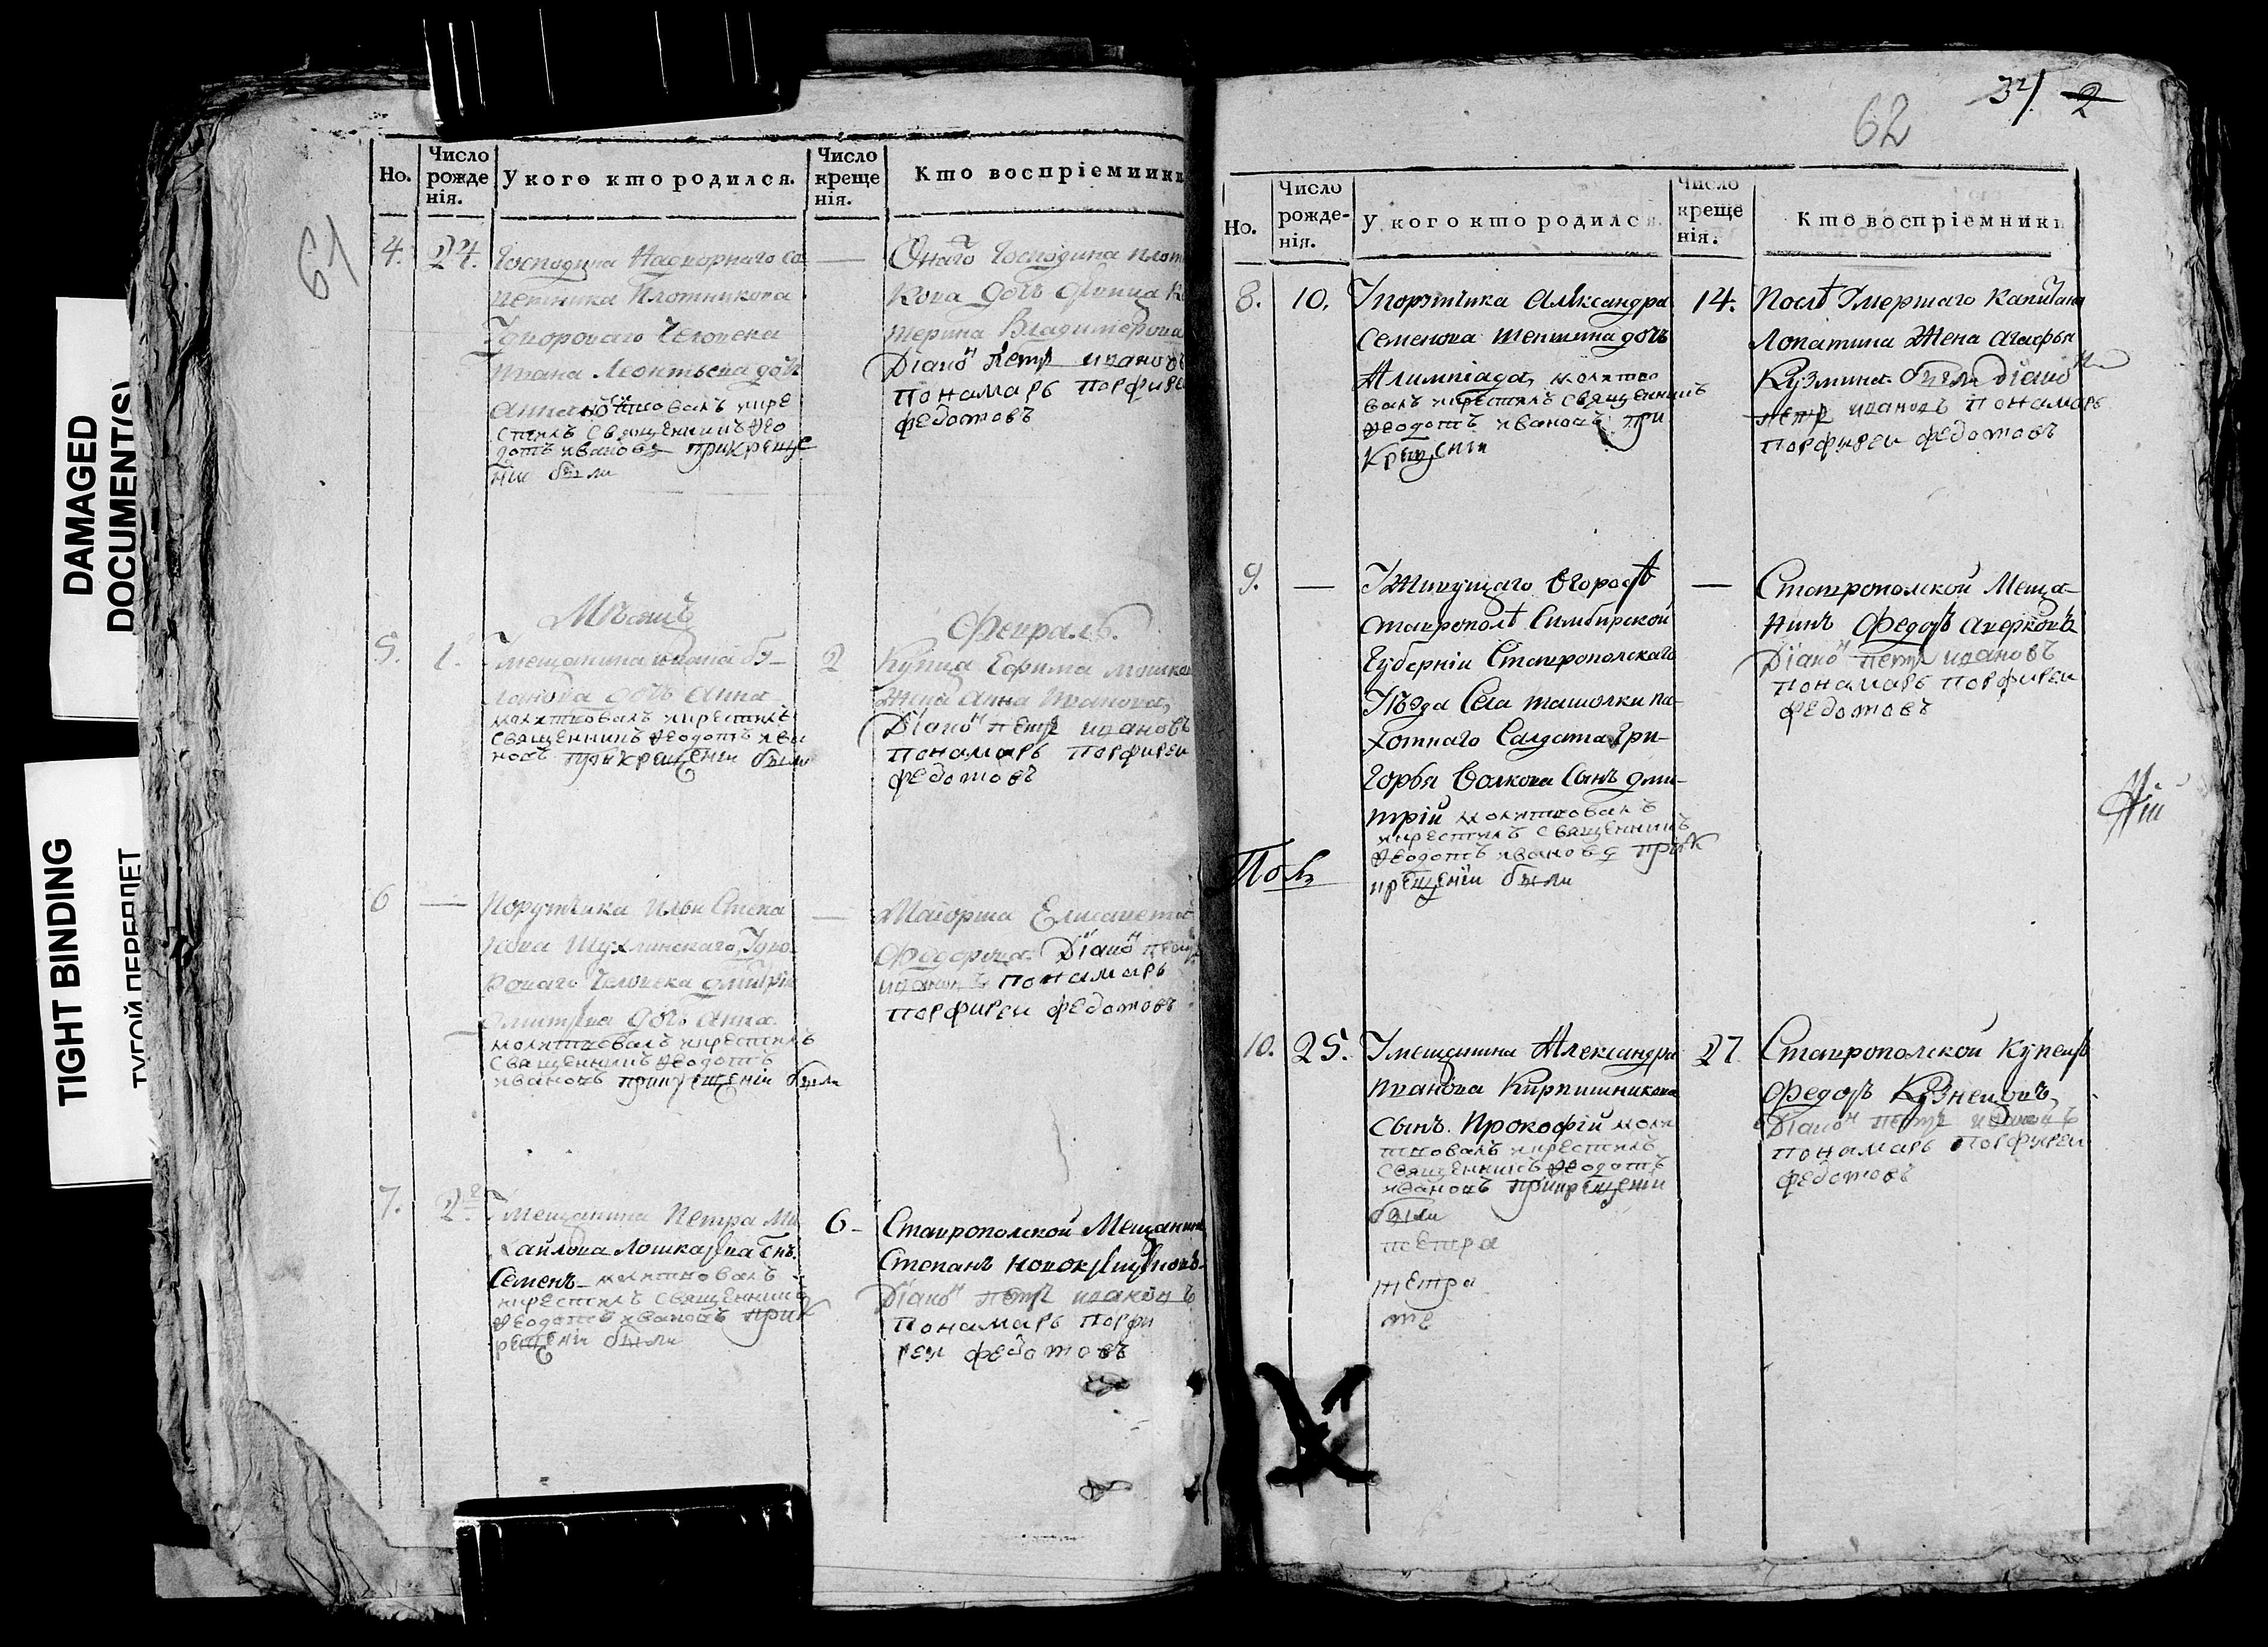 DAMAGED
DOCUMENT(S)
TIGHT BINDING
ТУГОЙ ПЕРЕПЛЕТ
61
Но.
Число рожденія.
У кого кто родился.
Число крещенія.
Кто воспріемники
4.
24.
Господина Надворнаго со
ветника Плотникова
Дворового человека
Ивана Леонтьева дочь
Анна молитвовалъ икре
стилъ священникъ Ѳео
дотъ ивановъ прикреще
нiи были
—
Онаго Господина плот
кова дочь девица Ка
терина Владимерова
Діаконъ петръ ивановъ
пономарь порфирей
федотовъ
Мѣсяцъ
Февраль.
5.
1.
Умещанина ивана бу
ланова дочь Анна
молитвовалъ икрестилъ
священникъ Ѳеодотъ ива
новъ прикрещенiи были
2
Купца Ефима мошко
Жена Анна Иванова,
Діаконъ петръ ивановъ
пономарь порфирей
федотовъ
6
—
Порутчика Ильи Степа
нова Шухлинскаго, Удво
роваго человека дмитрія
дмитріева дочь Анна.
молитвовалъ икрестилъ
священникъ Ѳеодотъ
ивановъ прикрещенiи были
—
Маіорша Елисавета
Федорова. Діаконъ петръ
ивановъ пономарь
порфирей федотовъ
7.
2.
Умещанина Петра Ми
хайлова Лошкарева сынъ
Семенъ молитвовалъ
икрестилъ священникъ
Ѳеодотъ ивановъ прик
рещенiи были
6
Ставропольской Мещанинъ
Степанъ Новокрещеновъ
Діаконъ петръ ивановъ
пономарь порфи
рей федотовъ
62
2
Но.
Число рожде-нія.
У кого кто родился.
Число крещенія.
Кто воспріемники
8.
10.
Упорутчика Александра
Семенова Шентина дочь
Алимпіада, молитво
валъ икрестилъ священникъ
Ѳеодотъ ивановъ при
крещенiи
14.
Послѣ Умершаго капитана
Лопатина Жена Агафья
Кузмина были Діаконъ
петръ ивановъ пономарь
порфирей федотовъ
9.
—
Уживущаго вгородѣ
ставрополѣ Симбирской
Губерніи Ставропольскаго
Уѣзда Села ташолки па-
хотнаго Салдата Гри-
горья Волкова Сынъ дми-
трій молитвовалъ
икрестилъ священникъ
Ѳеодотъ ивановъ прик
рещенiи были
—
Ставропольской Меща-
нинъ Федоръ Аверковъ
Діаконъ петръ ивановъ
пономарь порфирей
федотовъ
10.
25.
Умещанина Александра
Иванова Кирпишникова
сынъ. Прокофій моли
твовалъ икрестилъ
священникъ Ѳеодотъ
ивановъ прикрещенiи
были
27
Ставропольской купецъ
Федоръ Кузнецовъ,
Діаконъ петръ ивановъ
пономарь порфирей
федотовъ